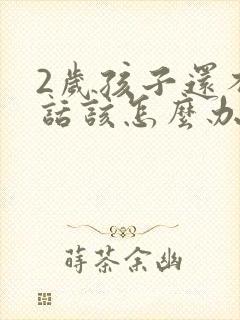 2歲孩子還
話該怎麼办
蒔茶余幽